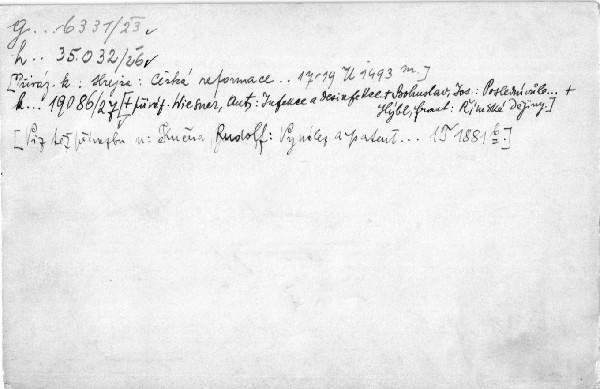 g... 6331/23
h.. 35.032/26
[Přiváz. k.: Hrejsa: Česká reformace .. 17 r 19 U 1493 m.]
k... 19086/27 [+ přiváz. Wiesner, Ant.: Infekce a desinfekce + Bohuslav, Jos.: Poslední vůle... +
Hýbl, Frant.: Římské Dějiny.]
[Viz též přívazbu u: Kučera, Rudolf: Vynález a patent... 1 I 1881]